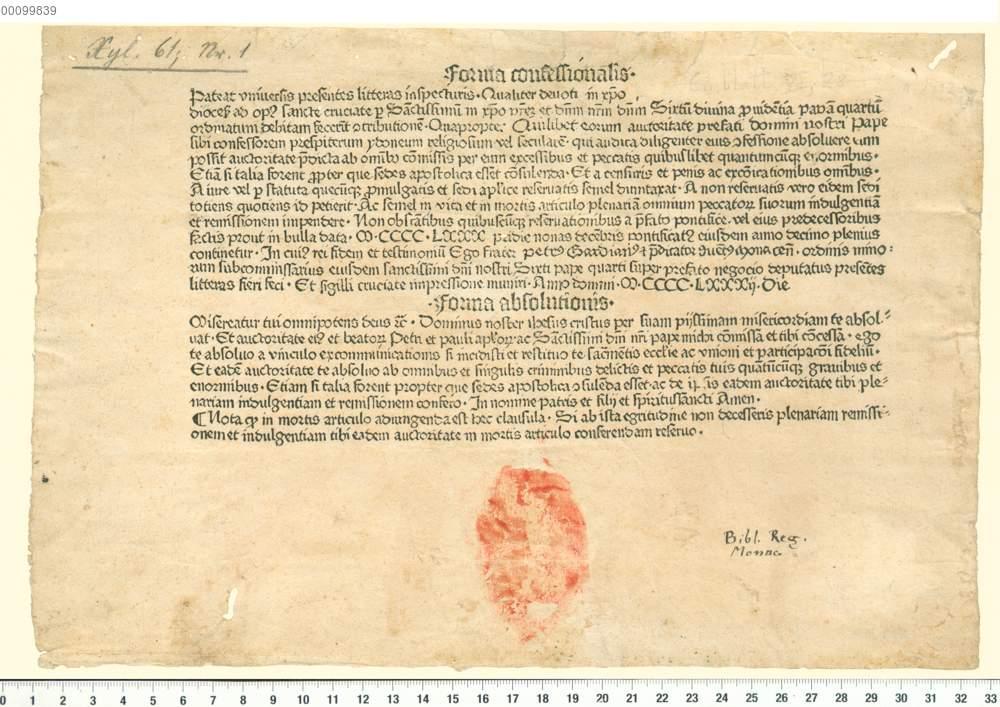 00099839
Xyl. 61; Nr. 1
Forma confessionalis·
Pateat vniuersis presentes litteras inspecturis · Qualiter deuoti in xp̄o
dioceſ ad opꝰ sancte cruciate ꝑ Sanctissimū in xp̄o pr̄eꝫ et dn̄m nr̄m dn̄m Sixtū diuina ꝓuidētia papam quartū
ordinatum debitam fecerīt ↄtributionē · Quapropter Quilibet eorum auctoritate prefati domini nostri Pape
sibi confessorem prespiterum ydoneum religiosum vel secularē · qui audita diligenter eius ↄfessione absoluere eum
possit auctoritate p̄dicta ab om̄ibꝰ cōmissis per eum excessibus et peccatis quibuslibet quantumcūqꝫ enormibus ·
Etiā si talia forent ꝓpter que sedes apostolica esset cōsulenda · Et a censuris et penis ac excōicationibus omībus ·
A iure vel ꝑ statuta quecūqꝫ ꝓmulgatis et sedi apl'ice reseruatis semel dumtaxat · A non reseruatis vero eidem sedi
totiens quotiens id petierit · Ac semel in vita et in mortis articulo plenariam omnium peccatorꝫ suorum indulgentiā
et remissionem impendere · Non obstātibus quibuscūqꝫ reseruationibus a p̄fato pontifice · vel eius predecessoribus
factis prout in bulla data · M·CCCC·LXXX pridie nonas decēbris pontificatꝰ eiusdem anno decimo plenius
continetur · In cuiꝰ rei fidem et testimoniū Ego frater petrꝰ Gardianꝰ ordinis mino-
rum subcommissarius eiusdem sanctissimi dn̄i nostri Sixti pape quarti super prefato negocio deputatus presētes
litteras fieri feci · Et sigilli cruciate impressione muniri · Anno domini · M·CCCC·LXXXij· Die
·Forma absolutionis·
Misereatur tui omnipotens deus ꝛc̄ · Dominus noster ihesus cristus per suam pijssimam misericordiam te absol-
uat · Et auctoritate eiꝰ et beatorꝫ Petri et pauli apl'orꝫ ac Sanctissimi dn̄i nr̄i pape michi cōmissa et tibi cōcessa · ego
te absoluo a vinculo excommunicationis si incidisti et restituo te sacramētis eccl'ie ac vnioni et participacōi fidelium ·
Et eadē auctoritate te absoluo ab omnibus et singulis criminibus delictis et peccatis tuis quātūcūqꝫ grauibus et
enormibus · Etiam si talia forent propter que sedes apostolica ↄsulēda esset · ac de ip̄is eadem auctoritate tibi ple-
nariam indulgentiam et remissionem confero · In nomine patris et filij et spiritussancti Amen ·
¶Nota ꝙ in mortis articulo adiungenda est hec clausula · Si ab ista egritudine non decesseris plenariam remissi-
onem et indulgentiam tibi eadem auctoritate in mortis articulo conferendam reseruo ·
Bibl. Reg.
Monac.
0 1 2 3 4 5 6 7 8 9 10 11 12 13 14 15 16 17 18 19 20 21 22 23 24 25 26 27 28 29 30 31 32 33